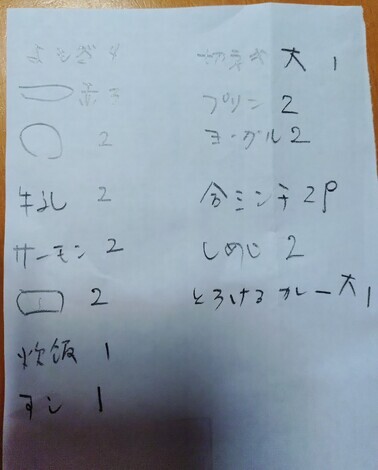 よもぎ 4
2
牛乳 2
サーモン 2
2
炊飯 1
すし 1
切ネギ 大 1
プリン 2
ヨーグル 2
合ミンチ 2P
しめじ 2
とろけるカレー大 1